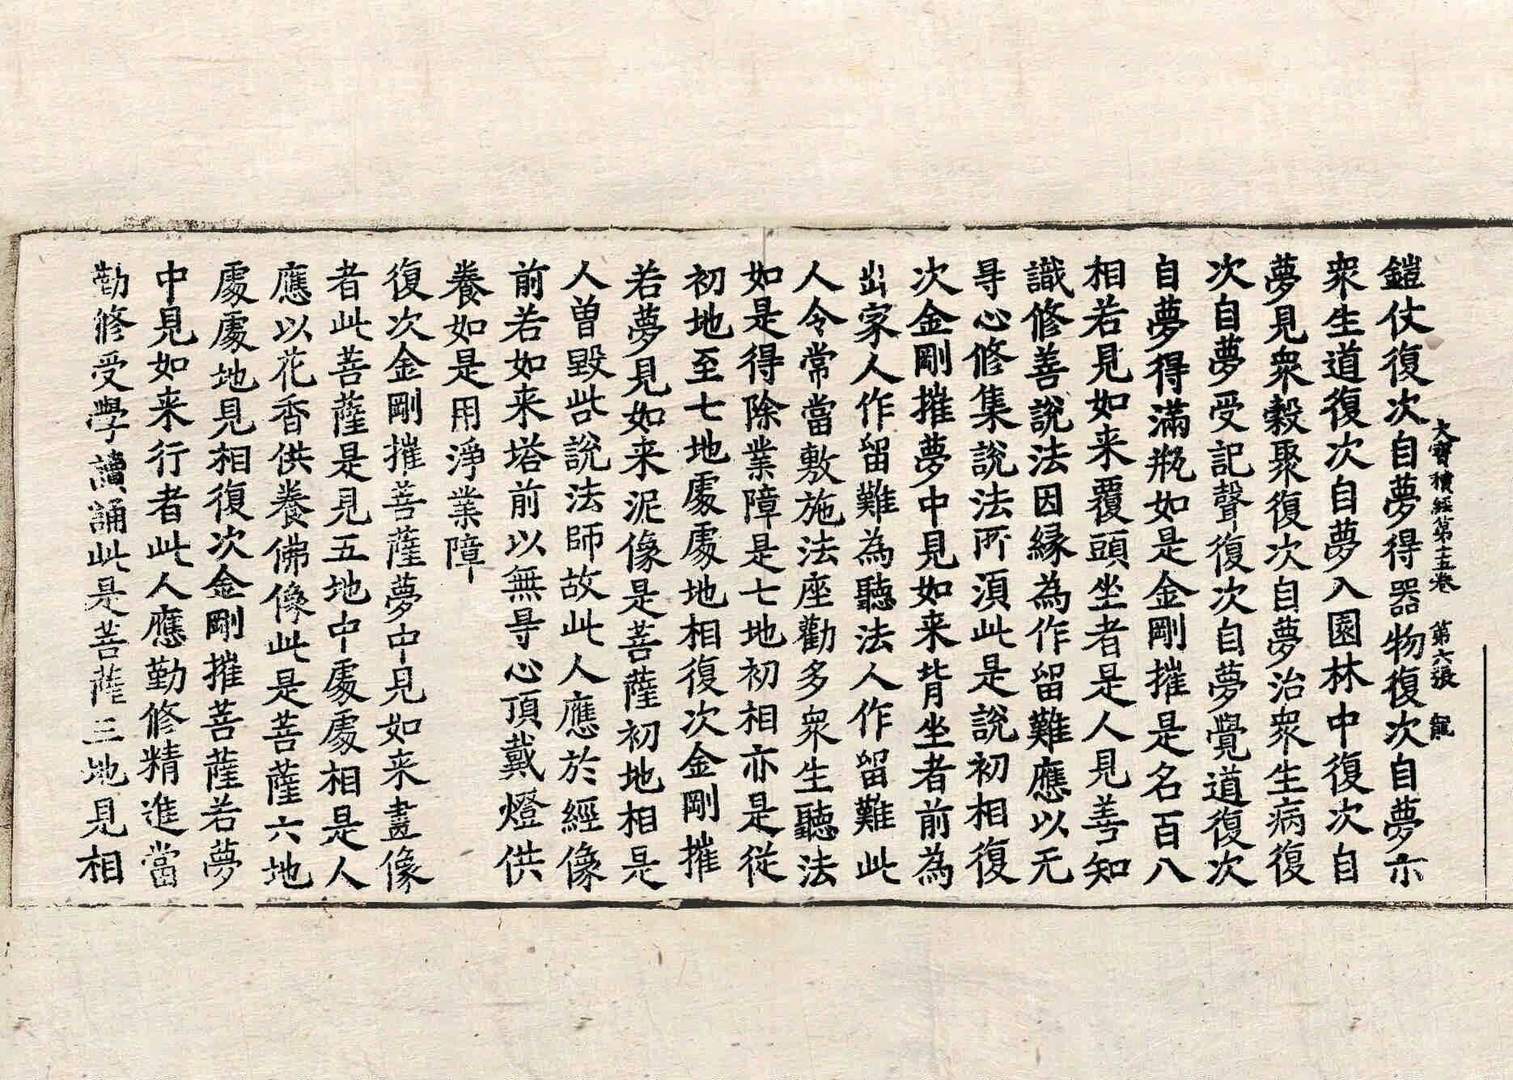 大寶積經第十五卷 第六張 龍
鎧仗復次自夢得器物復次自夢示
衆生道復次自夢入園林中復次自
夢見衆穀聚復次自夢治衆生病復
次自夢受記聲復次自夢覺道復次
自夢得滿瓶如是金剛摧是名百八
相若見如来覆頭坐者是人見善知
識修善說法因緣為作留難應以无
㝵心修集說法所須此是說初相復
次金剛摧夢中見如来背坐者前為
出家人作留難為聽法人作留難此
人令常當敷施法座勸多衆生聽法
如是得除業障是七地初相亦是従
初地至七地處處地相復次金剛摧
若夢見如来泥像是菩薩初地相是
人曽毀呰說法師故此人應於經像
前若如来塔前以無㝵心頂戴燈供
養如是用淨業障
復次金剛摧菩薩夢中見如来畫像
者此菩薩是見五地中處處相是人
應以花香供養佛像此是菩薩六地
處處地見相復次金剛摧菩薩若夢
中見如来行者此人應勤修精進當
勤修受學讀誦此是菩薩三地見相